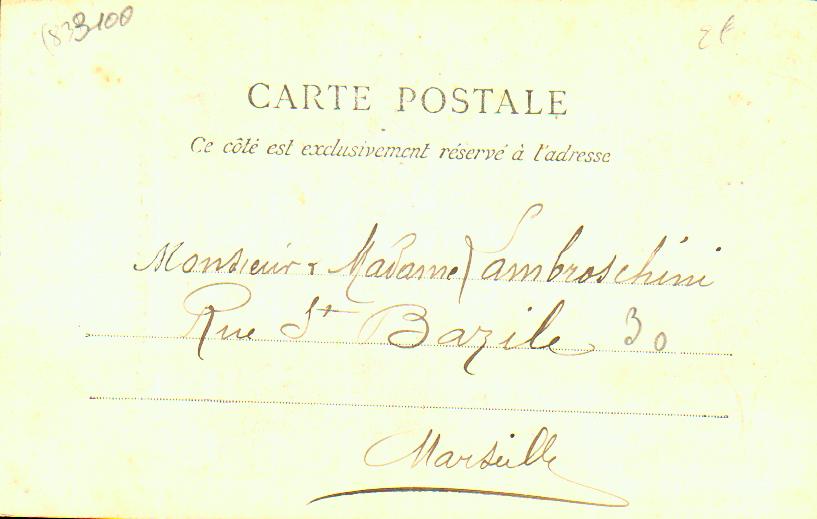 (83)3100 2€
CARTE POSTALE
Ce côté est exclusivement réservé à l'adresse
Monsieur & Madame Lambroschini
Rue St Bazile 30
Marseille